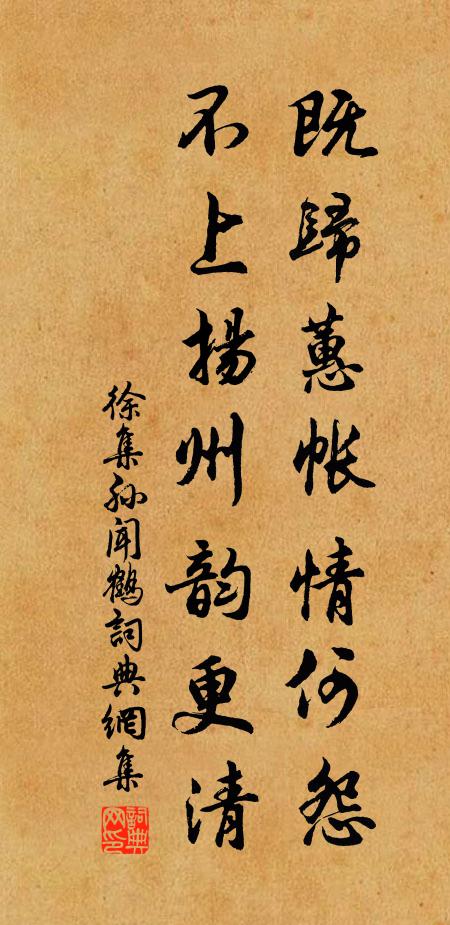 既歸蕙帳情何怨
不上揚州韵更清
徐集孙闻鶴詞典網集
詞典网印